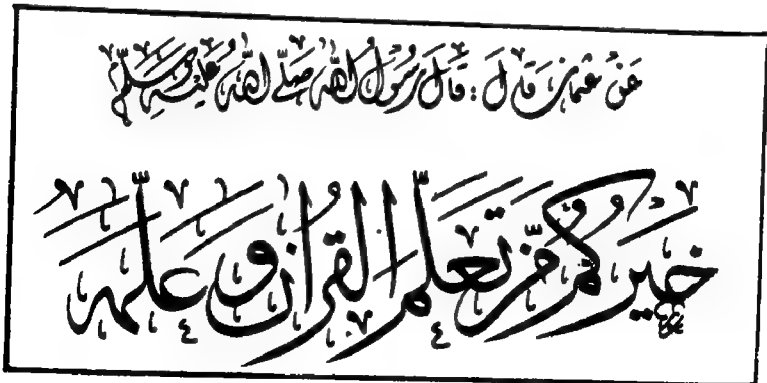 عَنْ عُثْمَانَ قَالَ : قَالَ رَسُوْلُ اللّٰهِ صَلَّى اللّٰهُ عَلَيْهِ وَسَلَّمَ
خَيْرُكُمْ مَّنْ تَعَلَّمَ الْقُرْاٰنَ وَعَلَّمَهٗ